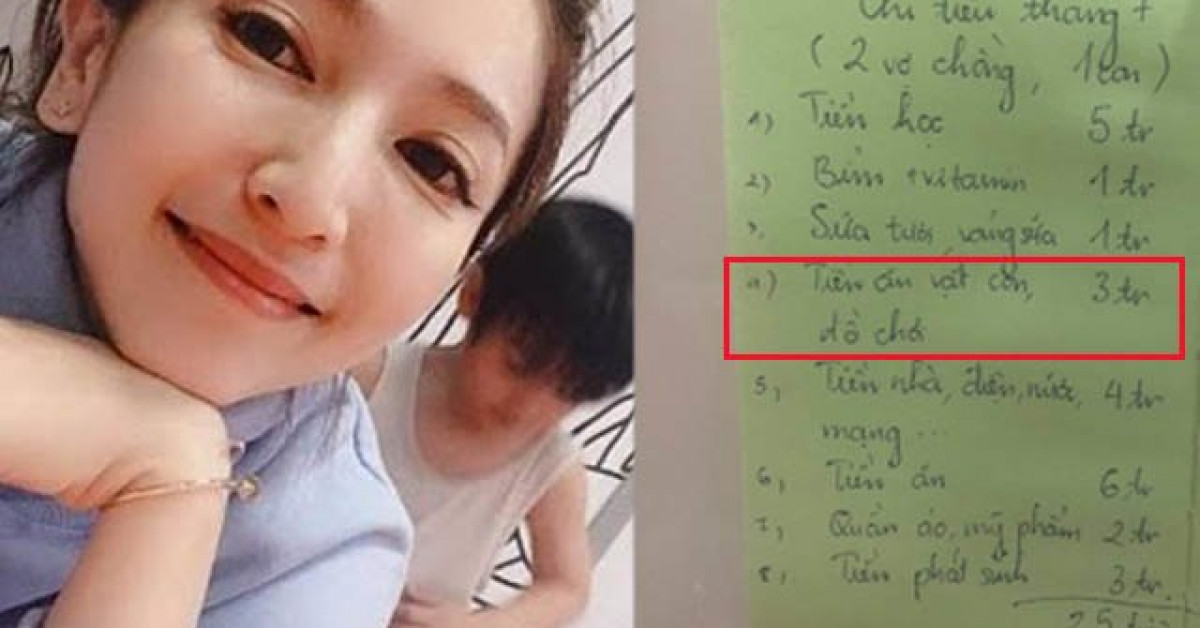 Chi tiêu tháng 7
( 2 vợ chồng, 1 con )
1) Tiền học 5 tr
2) Bỉm + vitamin 1 tr
3, Sữa tươi, váng sữa 1 tr
4) Tiền ăn vặt con, 3 tr
đồ chơi
5, Tiền nhà, điện, nước, 4 tr
mạng ...
6, Tiền ăn 6 tr
7, Quần áo, mỹ phẩm 2 tr
8, Tiền phát sinh 3 tr.
25